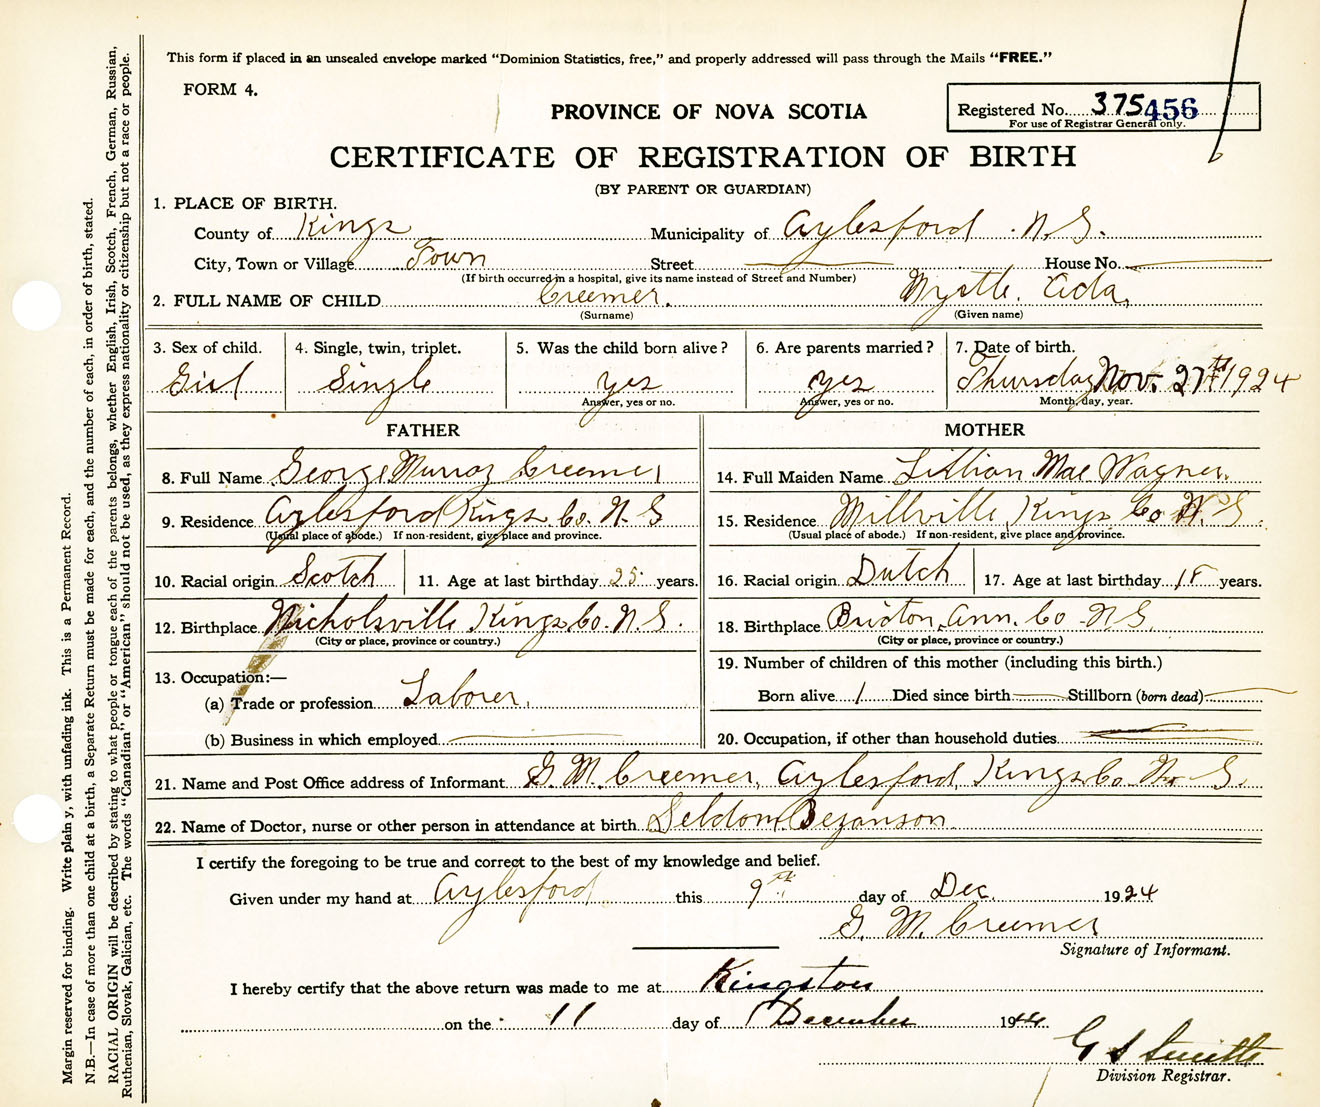 This form if placed in an unsealed envelope marked "Dominion Statistics, free," and properly addressed will pass through the Mails "FREE."
FORM 4.
PROVINCE OF NOVA SCOTIA
Registered No. 375456
For use of Registrar General only.
CERTIFICATE OF REGISTRATION OF BIRTH
(BY PARENT OR GUARDIAN)
1. PLACE OF BIRTH.
County of Kings Municipality of Aylesford N.S.
City, Town or Village Town Street House No.
(If birth occurred in a hospital, give its name instead of Street and Number)
2. FULL NAME OF CHILD Creemer. Myrtle. Ada,
(Surname) (Given name)
3. Sex of child. 4. Single, twin, triplet. 5. Was the child born alive? 6. Are parents married? 7. Date of birth.
Girl Single yes yes Thursday Nov. 27th 1924
Answer, yes or no. Answer, yes or no. Month, day, year.
FATHER MOTHER
8. Full Name George Murray Creemer 14. Full Maiden Name Lillian Mae Wagner.
9. Residence Aylesford Kings Co. N.S 15. Residence Millville, Kings Co N.S.
(Usual place of abode.) If non-resident, give place and province. (Usual place of abode.) If non-resident, give place and province.
10. Racial origin Scotch 11. Age at last birthday 25 years. 16. Racial origin Dutch 17. Age at last birthday 18 years.
12. Birthplace Nicholsville, Kings Co. N.S. 18. Birthplace Ann. Co N.S.
(City or place, province or country.) (City or place, province or country.)
13. Occupation:— 19. Number of children of this mother (including this birth.)
(a) Trade or profession Laborer. Born alive 1 Died since birth Stillborn (born dead)
(b) Business in which employed 20. Occupation, if other than household duties
21. Name and Post Office address of Informant G. M. Creemer, Aylesford, Kings Co. N.S.
22. Name of Doctor, nurse or other person in attendance at birth Seldom Bezanson
I certify the foregoing to be true and correct to the best of my knowledge and belief.
Given under my hand at Aylesford this 9th day of Dec. 1924
G. M. Creemer
Signature of Informant.
I hereby certify that the above return was made to me at Kingston
on the 11 day of December 1924
G S Smith
Division Registrar.
Margin reserved for binding. Write plainly, with unfading ink. This is a Permanent Record.
N.B.—In case of more than one child at a birth, a Separate Return must be made for each, and the number of each, in order of birth, stated.
RACIAL ORIGIN will be described by stating to what people or tongue each of the parents belongs, whether English, Irish, Scotch, French, German, Russian,
Ruthenian, Slovak, Galician, etc. The words "Canadian" or "American" should not be used, as they express nationality or citizenship but not a race or people.